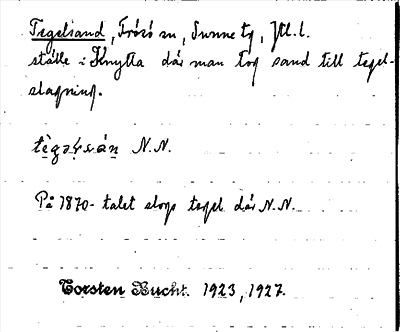 Tegelsand, Frösö sn, Sunne tg, Jtl. l.
ställe i Knytta där man tog sand till tegel-
slagning.
tègəɽsáṇ N.N.
På 1870-talet slogs tegel där N.N.
Torsten Bucht. 1923, 1927.